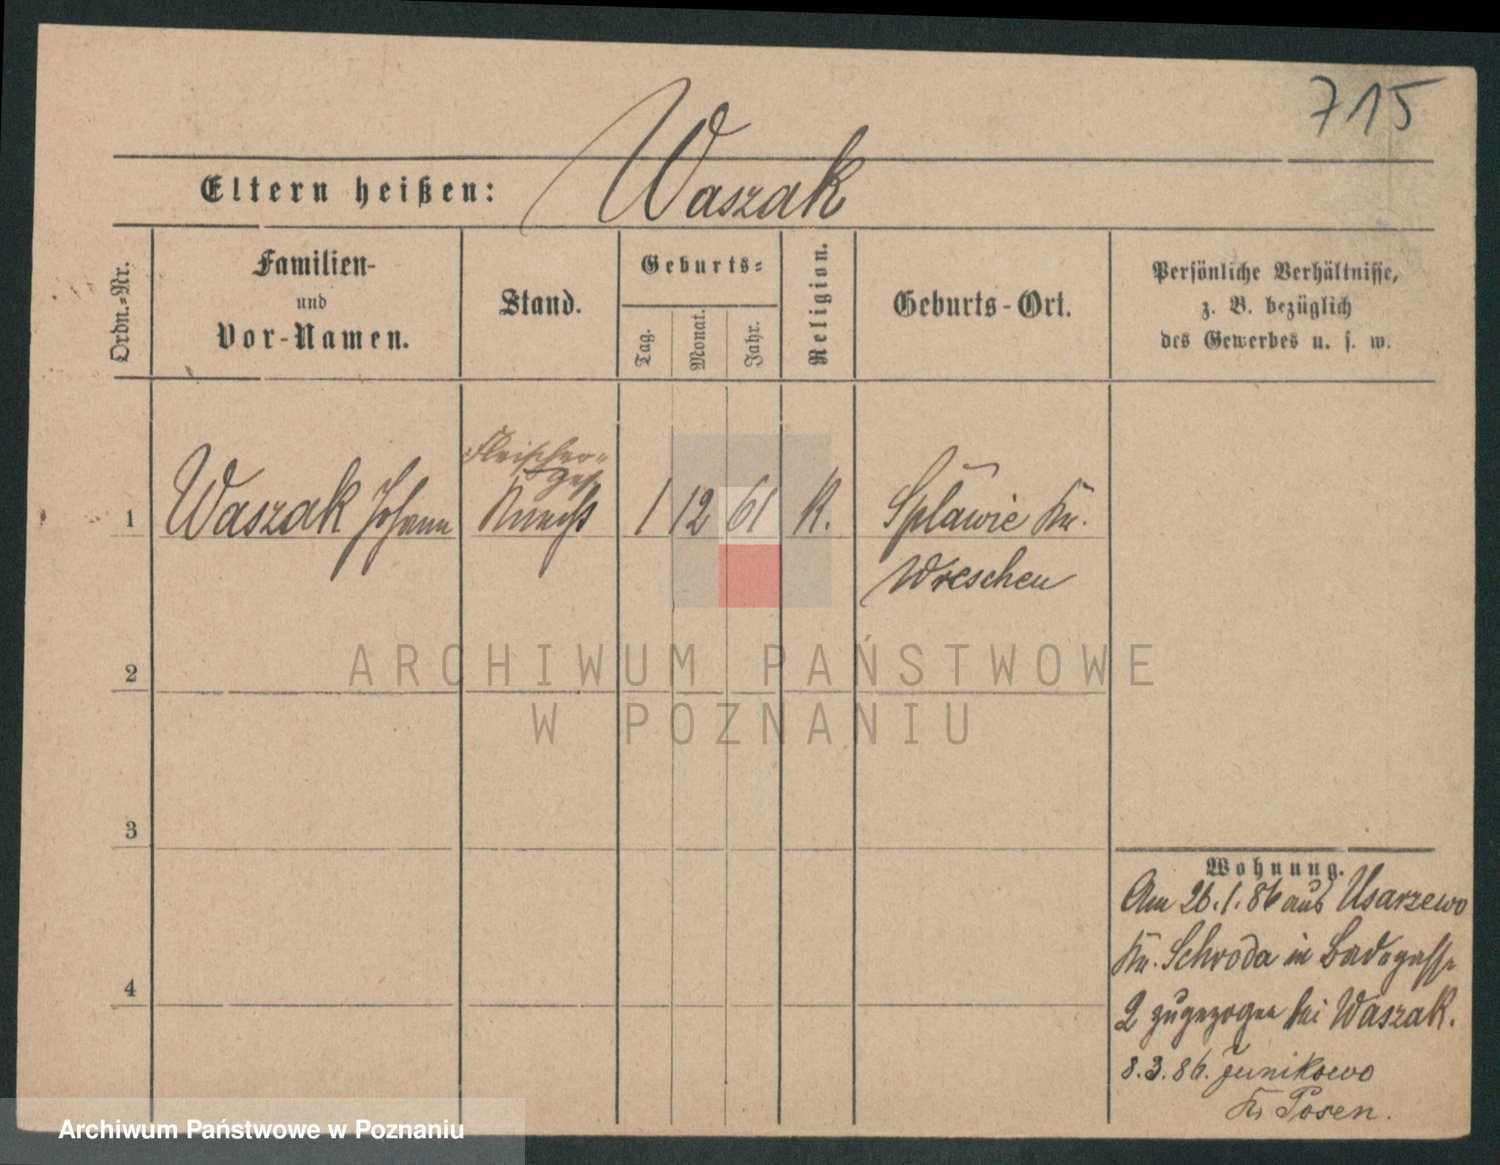 715
Eltern heißen: Waszak
Ordn.-Nr.
Familien-
und
Vor-Namen.
Stand.
Geburts-
Tag.
Monat.
Jahr.
Religion.
Geburts-Ort.
Persönliche Verhältnisse,
z. B. bezüglich
des Gewerbes u. s. w.
Fleischer-
ges
1 Waszak Johann Knecht 1 12 61 K. Spławie Kr.
Wreschen
2
3
4
Wohnung.
Am 26.1.86 aus Usarzewo
Kr. Schroda in Badegasse
2 zugezogen bei Waszak.
8.3.86. Junikowo
Kr Posen.
ARCHIWUM PAŃSTWOWE
W POZNANIU
Archiwum Państwowe w Poznaniu